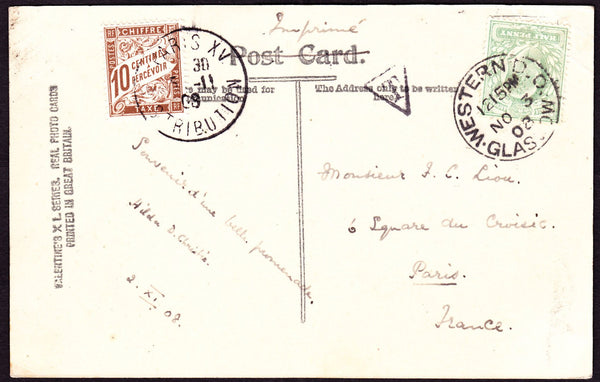 Imprimé
Post Card.
POSTES
RF CHIFFRE
10 CENTIMES
À PERCEVOIR
TAXE
PARIS XV
30
-11
08
DISTRIBUTION
may be used for
The Address only to be written
here
HALF PENNY
WESTERN D.O.
GLASGOW
12 15 PM
NO 3
08
VALENTINE'S X L SERIES. REAL PHOTO CARDS
PRINTED IN GREAT BRITAIN.
Souvenir d'une belle promenade.
Hilda D.
2. XI. 08.
Monsieur J. C. Liou.
6 Square du Croisic.
Paris.
France.